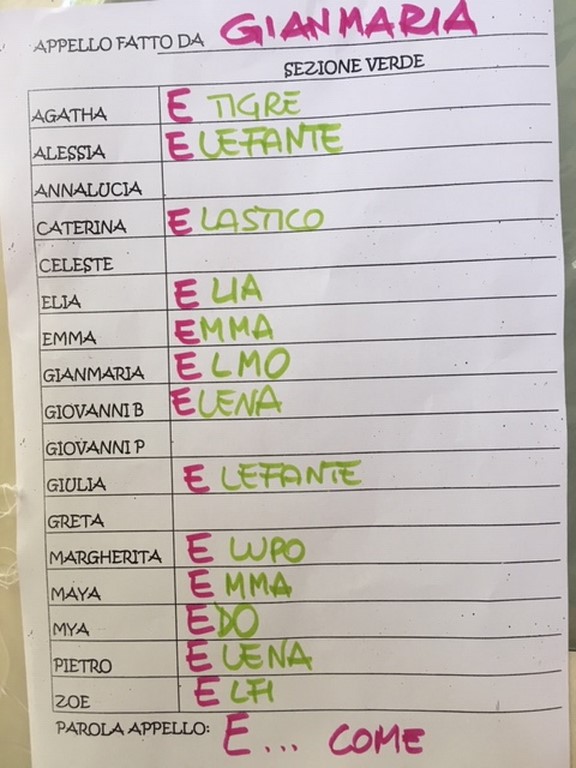 APPELLO FATTO DA GIANMARIA
SEZIONE VERDE
AGATHA E TIGRE
ALESSIA ELEFANTE
ANNALUCIA
CATERINA ELASTICO
CELESTE
ELIA ELIA
EMMA EMMA
GIANMARIA ELMO
GIOVANNI B ELENA
GIOVANNI P
GIULIA ELEFANTE
GRETA
MARGHERITA E LUPO
MAYA EMMA
MYA EDO
PIETRO ELENA
ZOE ELFI
PAROLA APPELLO: E... COME